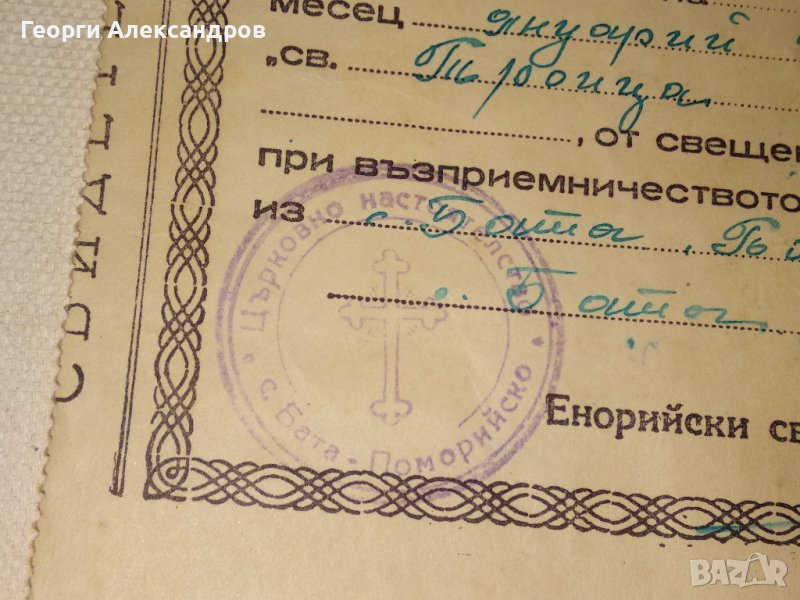 Георги Александров
на
месец януарий
„св. Троица
, от свещен
при възприемничеството
из с. Бата,
с. Бата
Църковно настоятелство
с. Бата - Поморийско
Енорийски св
СВИДЕТ
BAZAR